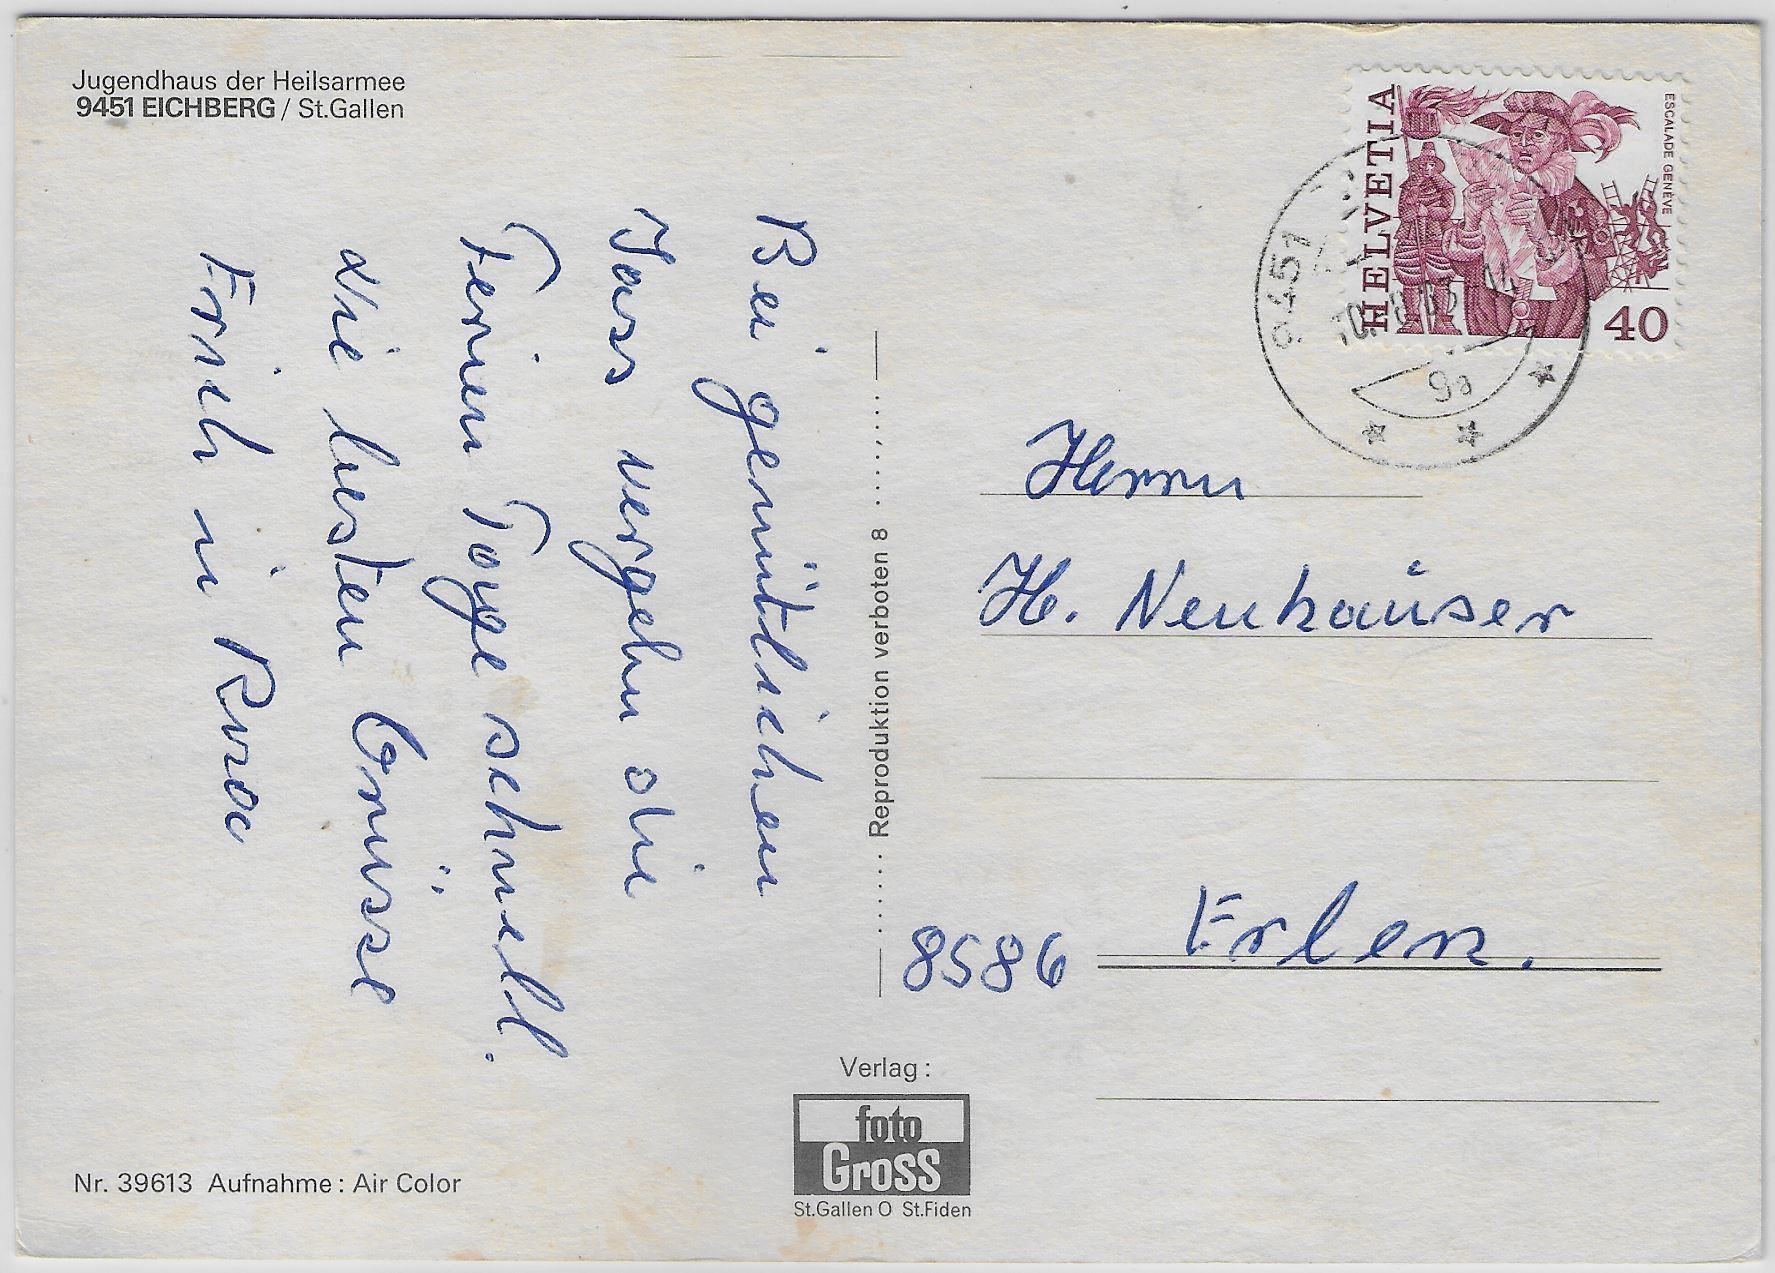 Jugendhaus der Heilsarmee
9451 EICHBERG / St.Gallen
HELVETIA
ESCALADE GENÈVE
40
9451
Bei gemütlichen
Jass vergehn die
Ferien Tage schnell.
die besten Grüsse
Erich u Rosa
Reproduktion verboten 8
Herrn
H. Neuhäuser
8586 Erlen.
Verlag :
foto
Gross
St.Gallen O St.Fiden
Nr. 39613 Aufnahme : Air Color